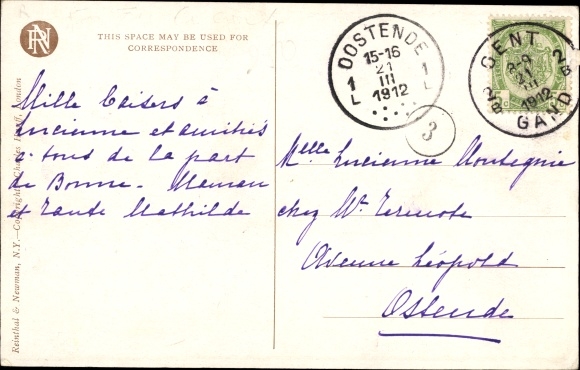 RN
THIS SPACE MAY BE USED FOR
CORRESPONDENCE
Mille baisers à
Lucienne et amitiés
à tous de la part
de Bonne-Maman
et Tante Mathilde
Reinthal & Newman, N.Y.—Copyright Charles London
OOSTENDE
15-16
21
III
1912
1 L
1 L
3
GENT
2B
8-9
21
III
1912
GAND
2B
Melle Lucienne Montegnie
chez Mr Termote
Avenue Léopold
Ostende